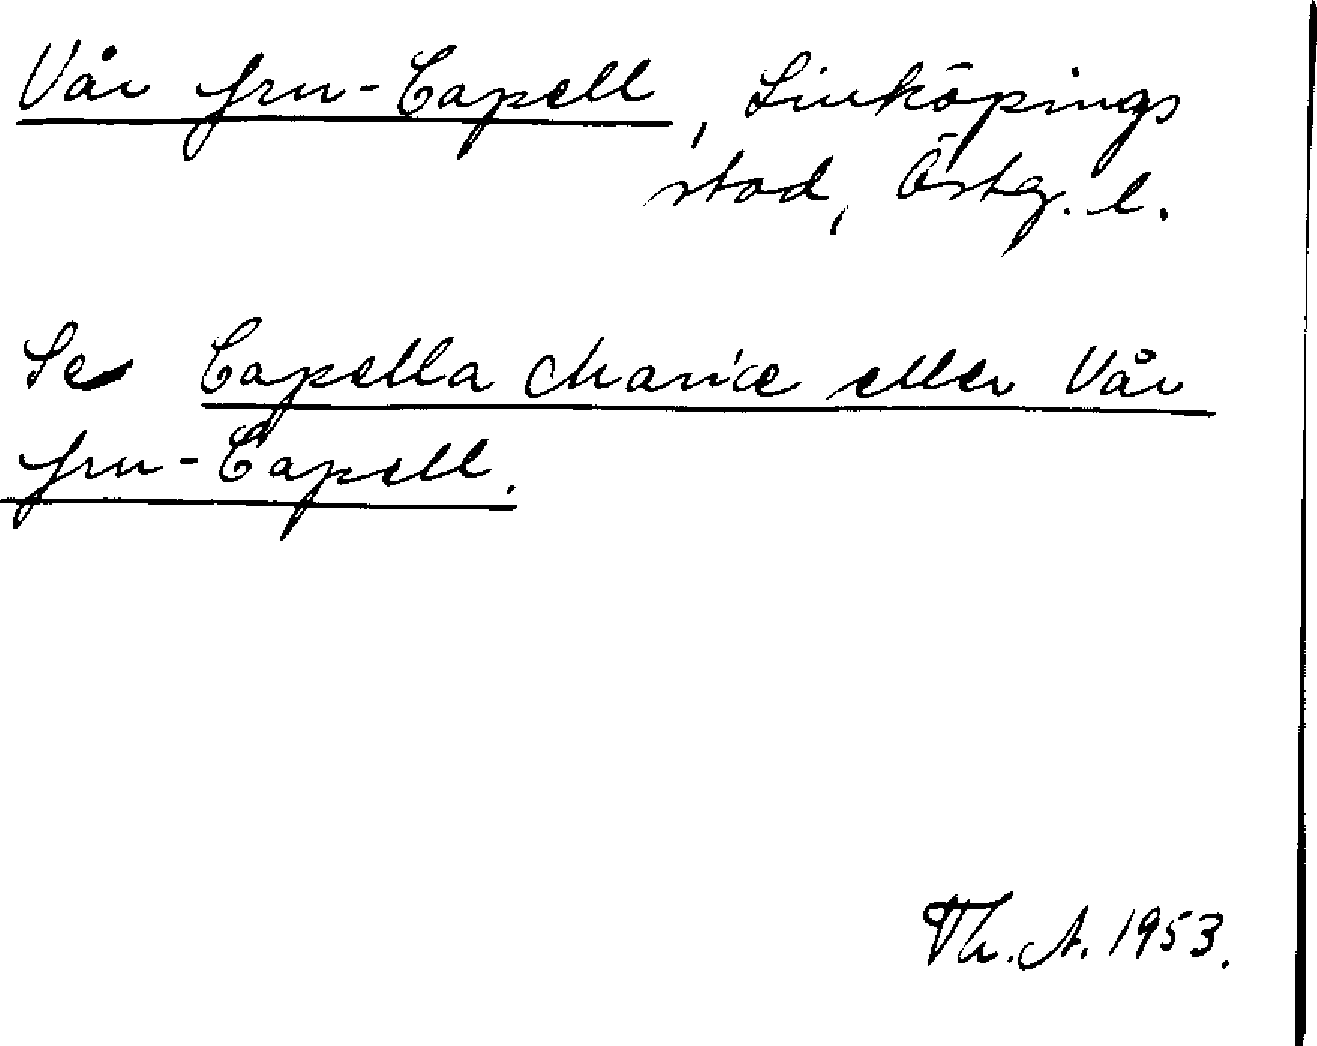 Vår fru-Capell, Linköpings
stad, Östg. l.
Se Capella Mariæ eller Vår
fru-Capell.
Th. A. 1953.